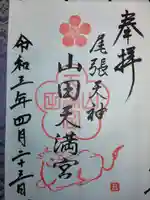 奉拝
尾張天神
山田天満宮
令和三年四月二十三日